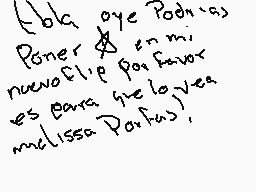 Hola oye Podrias
Poner ☆ en mi
nuevo flip por favor
es para que lo vea
melissa Porfas!